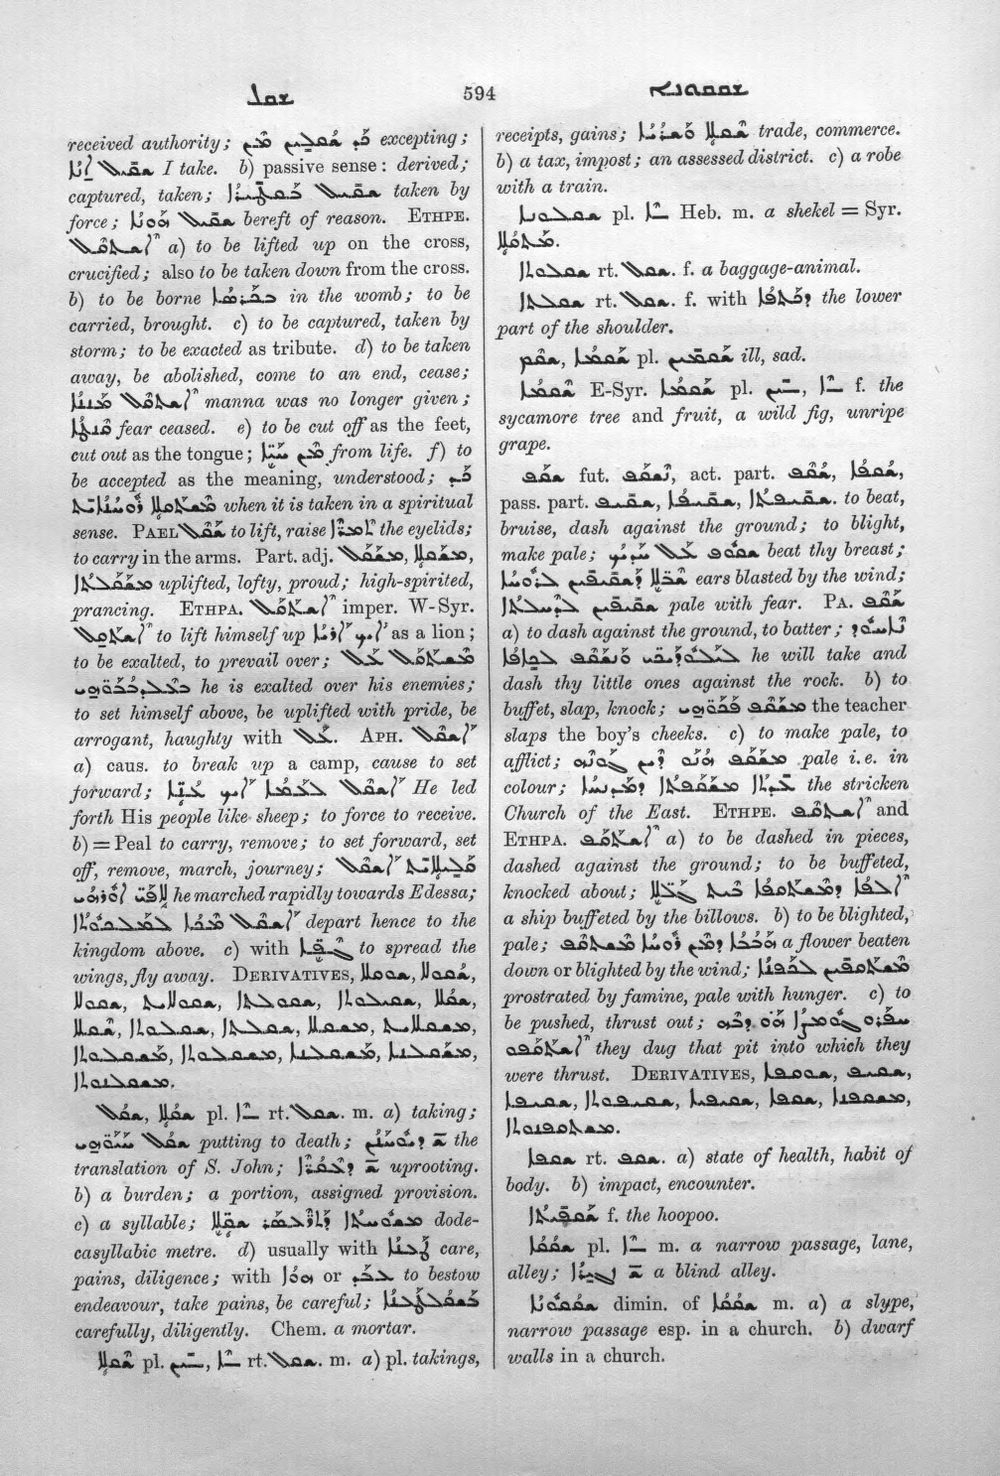 ܫܩܠ 594 ܫܩܘܩܘܢܐ
received authority; excepting;
ܫܩܝܠ ܐܢܐ I take. b) passive sense: derived;
captured, taken; ܫܩܝܠ ܒܩܛܝܪܐ taken by
force; ܫܩܝܠ ܗܘܢܐ bereft of reason. ETHPE.
ܐܫܬܩܠ a) to be lifted up on the cross,
crucified; also to be taken down from the cross.
b) to be borne ܒܟܪܣܐ in the womb; to be
carried, brought. c) to be captured, taken by
storm; to be exacted as tribute. d) to be taken
away, be abolished, come to an end, cease;
ܐܫܬܩܠ ܡܢܢܐ manna was no longer given;
fear ceased. e) to be cut off as the feet,
cut out as the tongue; ܡܢ ܚܝܐ from life. f) to
be accepted as the meaning, understood; ܟܕ
ܪܘܚܢܐܝܬ when it is taken in a spiritual
sense. PAEL ܫܩܠ to lift, raise the eyelids;
to carry in the arms. Part. adj. ܡܫܩܠ, ܡܫܩܠܐ,
ܡܫܩܠܬܐ uplifted, lofty, proud; high-spirited,
prancing. ETHPA. ܐܫܬܩܠ imper. W-Syr.
ܐܫܬܩܠ to lift himself up ܐܝܟ ܐܪܝܐ as a lion;
to be exalted, to prevail over; ܡܫܬܩܠ ܥܠ
ܒܥܠܕܒܒܘܗܝ he is exalted over his enemies;
to set himself above, be uplifted with pride, be
arrogant, haughty with ܥܠ. APH. ܐܫܩܠ
a) caus. to break up a camp, cause to set
forward; ܐܫܩܠ ܠܥܡܐ ܐܝܟ ܥܢܐ He led
forth His people like sheep; to force to receive.
b) = Peal to carry, remove; to set forward, set
off, remove, march, journey; ܐܫܩܠ ܩܠܝܠܐܝܬ
ܠܐܦܝ ܐܘܪܗܝ he marched rapidly towards Edessa;
ܐܫܩܠ ܡܟܐ ܠܡܠܟܘܬܐ depart hence to the
kingdom above. c) with ܓܦܐ to spread the
wings, fly away. DERIVATIVES,
ܫܩܠ, ܫܩܠܐ pl. rt. ܫܩܠ. m. a) taking;
putting to death; the
translation of S. John; uprooting.
b) a burden; a portion, assigned provision.
c) a syllable; dode-
casyllabic metre. d) usually with care,
pains, diligence; with ܗܘܐ or ܥܒܕ to bestow
endeavour, take pains, be careful;
carefully, diligently. Chem. a mortar.
ܫܩܠܐ pl. rt. ܫܩܠ. m. a) pl. takings,
receipts, gains; trade, commerce.
b) a tax, impost; an assessed district. c) a robe
with a train.
pl. Heb. m. a shekel = Syr.
ܡܬܩܠܐ.
rt. ܫܩܠ. f. a baggage-animal.
ܫܩܠܬܐ rt. ܫܩܠ. f. with ܕܟܬܦܐ the lower
part of the shoulder.
ܫܩܡ, ܫܩܡܐ pl. ܫܩܡܝܢ ill, sad.
ܫܩܡܐ E-Syr. ܫܩܡܐ pl. f. the
sycamore tree and fruit, a wild fig, unripe
grape.
ܫܩܦ fut. ܢܫܩܦ, act. part. ܫܩܦ, ܫܩܦܐ,
pass. part. ܫܩܝܦ, ܫܩܝܦܐ, ܫܩܝܦܬܐ. to beat,
bruise, dash against the ground; to blight,
make pale; ܫܩܘܦ ܥܠ ܚܕܝܟ beat thy breast;
ܫܒܠܐ ܕܫܩܝܦܝܢ ܠܪܘܚܐ ears blasted by the wind;
ܫܩܝܦܝܢ ܠܕܚܠܬܐ pale with fear. PA. ܫܩܦ
a) to dash against the ground, to batter;
ܠܥܠܘܠܝܟܝ ܘܢܫܩܦ ܠܟܐܦܐ he will take and
dash thy little ones against the rock. b) to
buffet, slap, knock; ܡܫܩܦ ܦܟܘܗܝ the teacher
slaps the boy's cheeks. c) to make pale, to
afflict; pale i.e. in
colour; ܥܕܬܐ ܡܫܩܦܬܐ ܕܡܕܢܚܐ the stricken
Church of the East. ETHPE. ܐܫܬܩܦ and
ETHPA. ܐܫܬܩܦ a) to be dashed in pieces,
dashed against the ground; to be buffeted,
knocked about; ܐܠܦܐ ܕܡܫܬܩܦܐ ܒܝܬ ܓܠܠܐ
a ship buffeted by the billows. b) to be blighted,
pale; ܘܪܕܐ ܕܡܢ ܪܘܚܐ ܡܫܬܩܦ a flower beaten
down or blighted by the wind; ܡܫܬܩܦܝܢ ܠܟܦܢܐ
prostrated by famine, pale with hunger. c) to
be pushed, thrust out; ܚܦܪܘ ܓܘܡܨܐ ܗܘ ܕܒܗ
ܐܫܬܩܦܘ they dug that pit into which they
were thrust. DERIVATIVES,
ܫܩܦܐ rt. ܫܩܦ. a) state of health, habit of
body. b) impact, encounter.
f. the hoopoo.
ܫܩܩܐ pl. m. a narrow passage, lane,
alley; a blind alley.
ܫܩܩܘܢܐ dimin. of ܫܩܩܐ m. a) a slype,
narrow passage esp. in a church. b) dwarf
walls in a church.